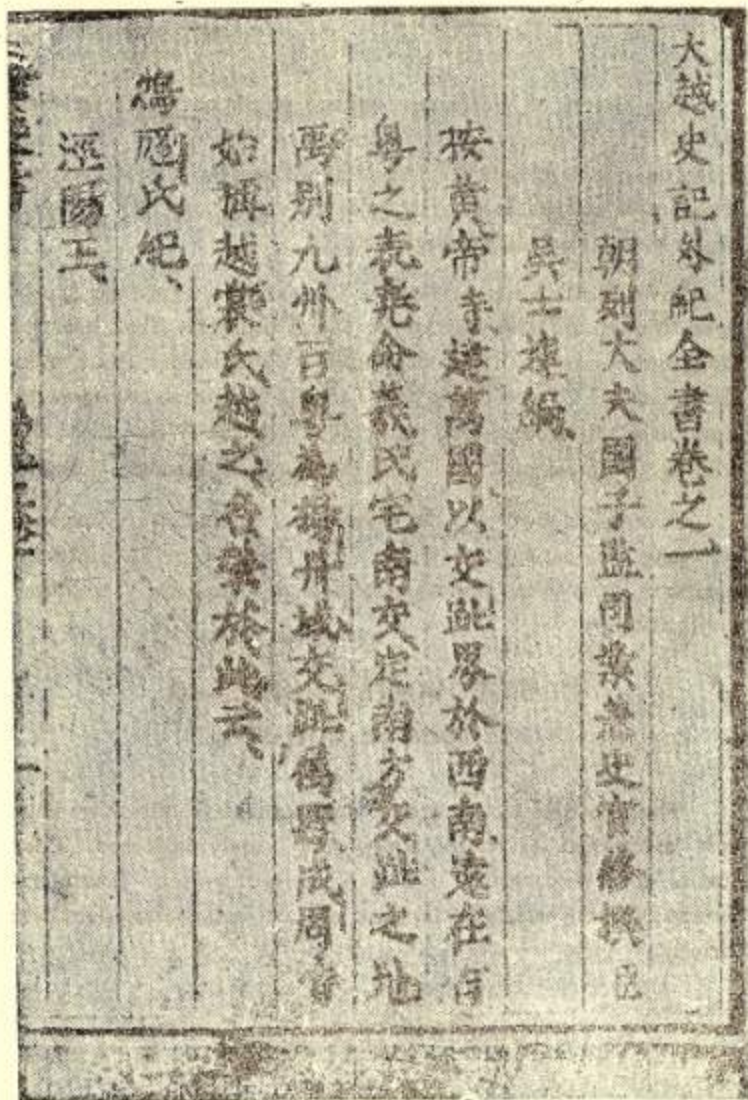 大越史記外紀全書卷之一
朝列大夫國子監司業兼史官修撰臣
吳士連編
按黃帝時建萬國以交趾界於西南遠在百
粤之表堯命羲氏宅南交定南方交趾之地
禹別九州百粤為揚州域交趾屬焉成周時
始稱越裳氏越之名肇於此云
鴻厖氏紀
涇陽王